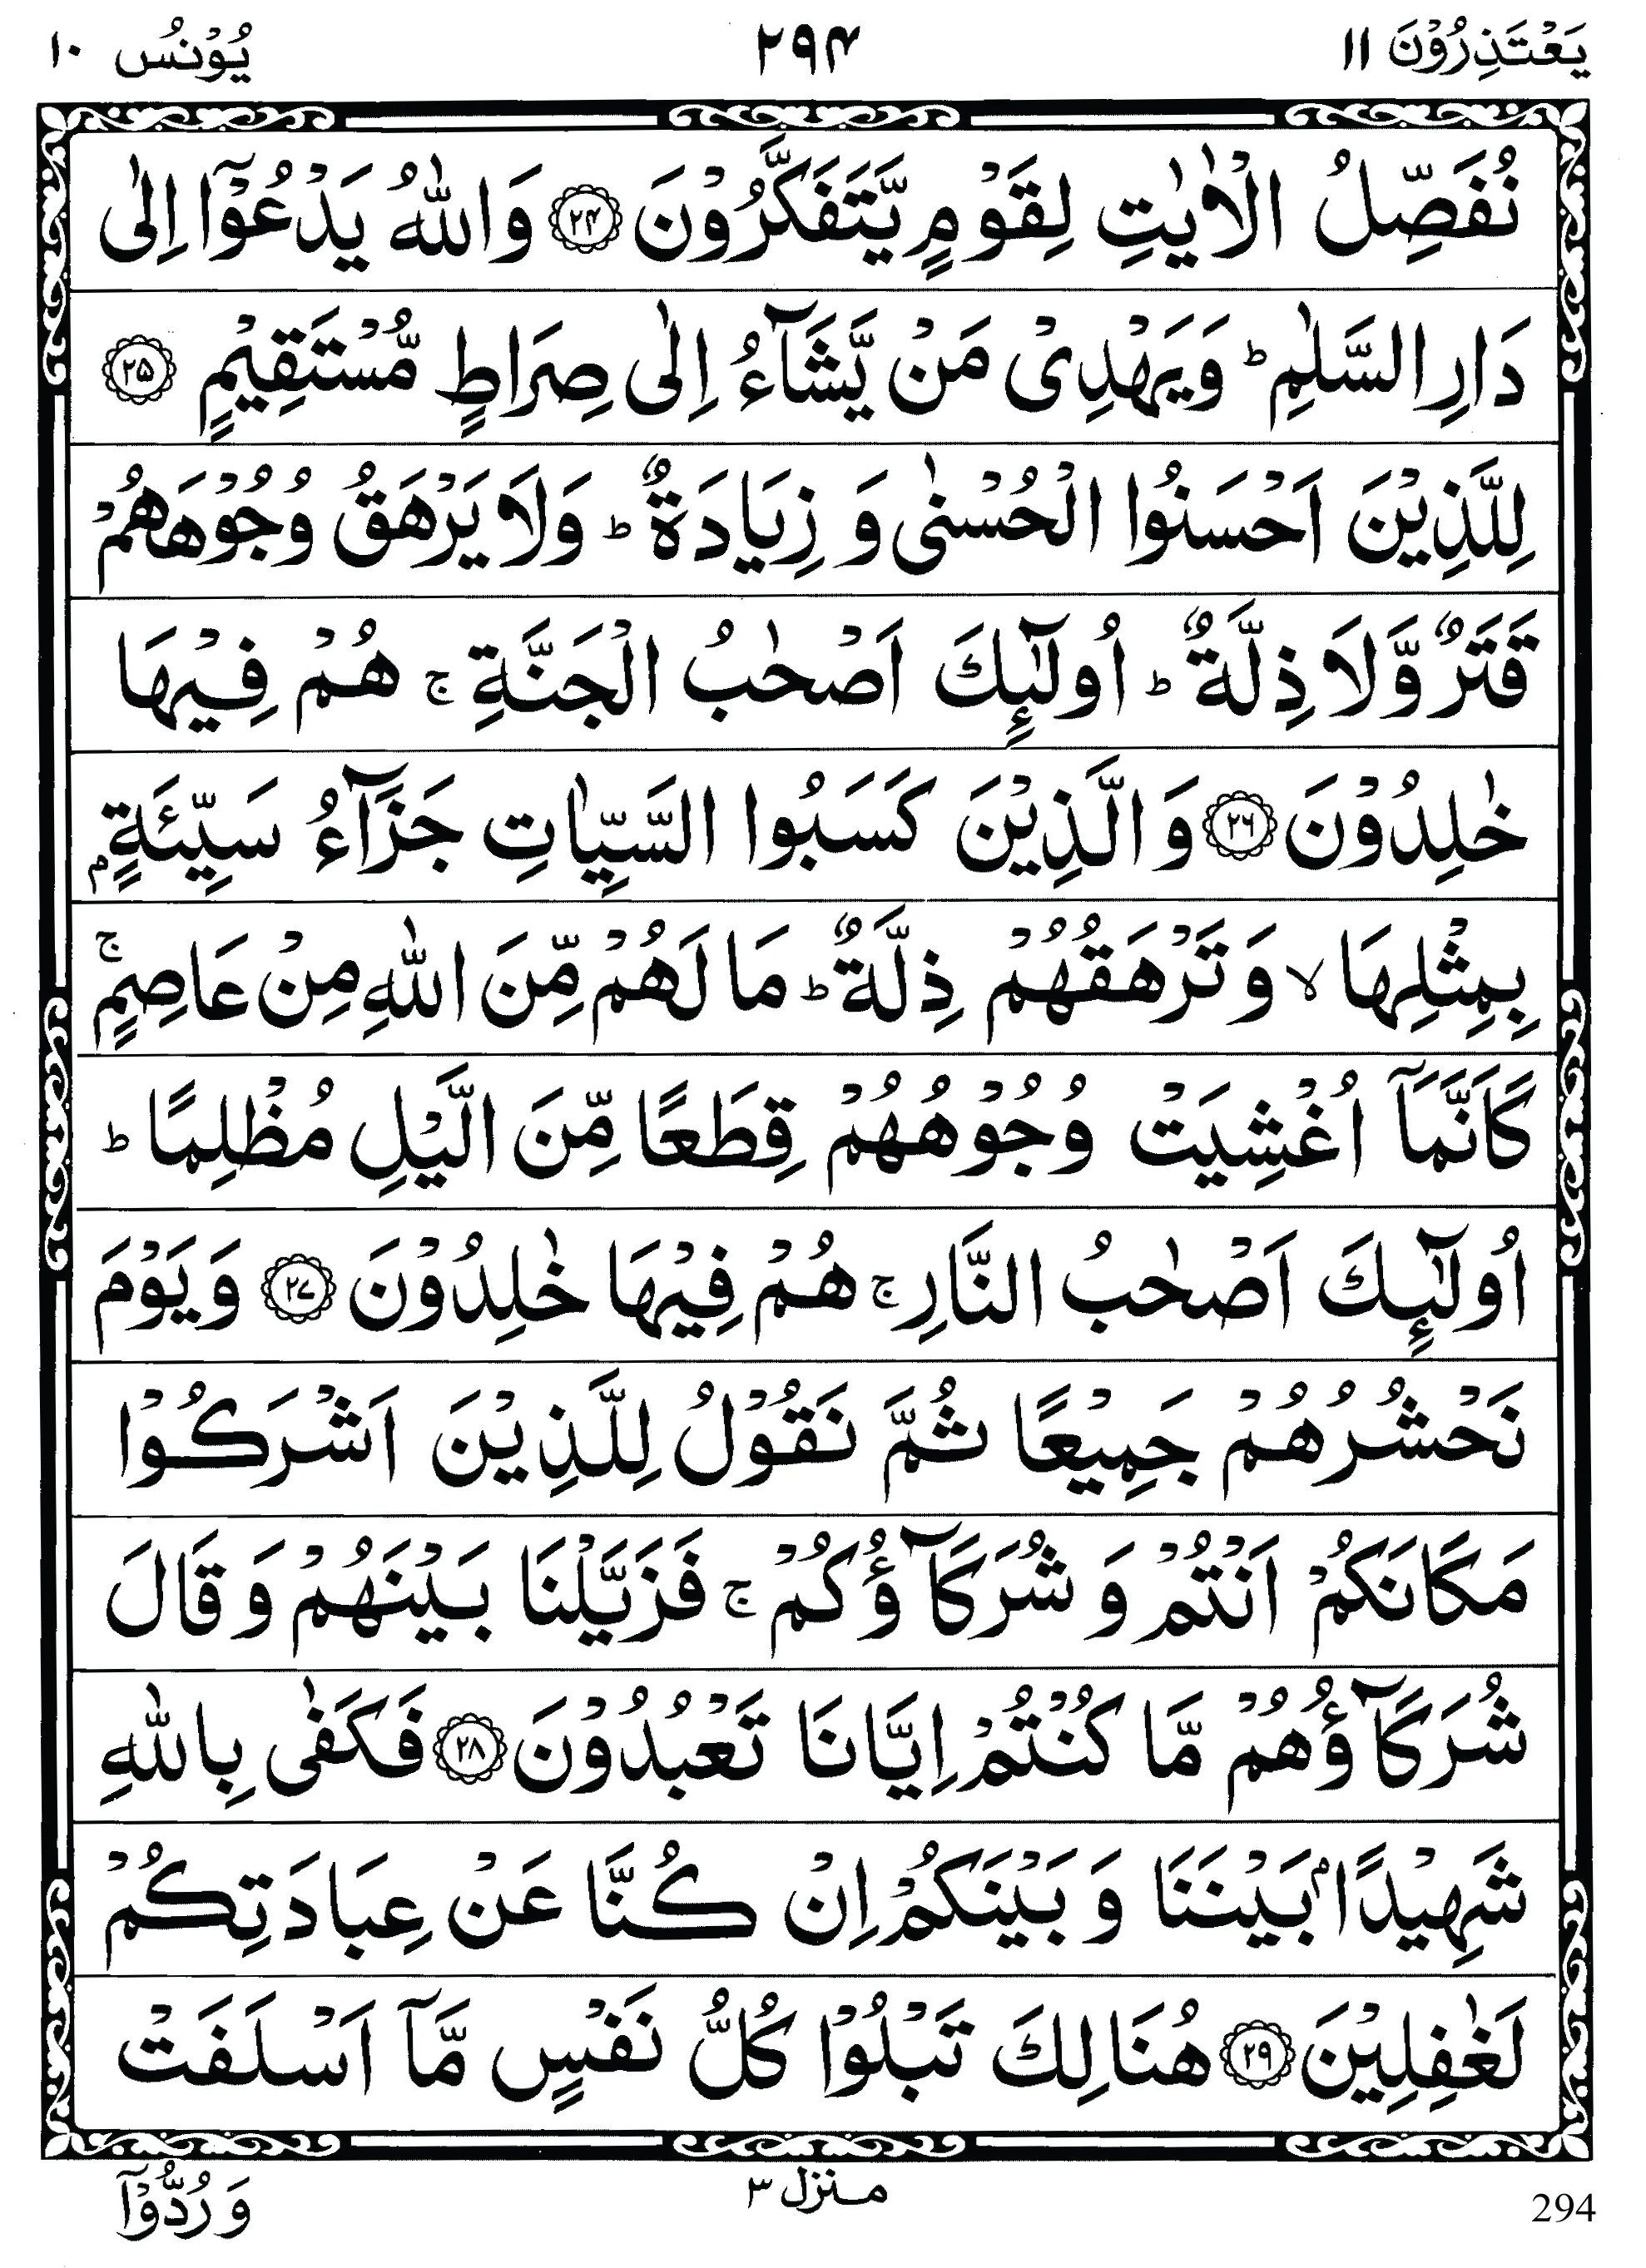 يَعْتَذِرُوْنَ ۱۱
۲۹۴
يُوْنُس ۱۰
نُفَصِّلُ الْاٰيٰتِ لِقَوْمٍ يَّتَفَكَّرُوْنَ ۝۲۴ وَاللّٰهُ يَدْعُوْٓا اِلٰى
دَارِ السَّلٰمِ ؕ وَيَهْدِىْ مَنْ يَّشَآءُ اِلٰى صِرَاطٍ مُّسْتَقِيْمٍ ۝۲۵
لِلَّذِيْنَ اَحْسَنُوا الْحُسْنٰى وَ زِيَادَةٌ ؕ وَلَا يَرْهَقُ وُجُوْهَهُمْ
قَتَرٌ وَّلَا ذِلَّةٌ ؕ اُولٰٓئِكَ اَصْحٰبُ الْجَنَّةِ ۚ هُمْ فِيْهَا
خٰلِدُوْنَ ۝۲۶ وَ الَّذِيْنَ كَسَبُوا السَّيِّاٰتِ جَزَآءُ سَيِّئَةٍۭ
بِمِثْلِهَا ۙ وَ تَرْهَقُهُمْ ذِلَّةٌ ؕ مَا لَهُمْ مِّنَ اللّٰهِ مِنْ عَاصِمٍ ۚ
كَاَنَّمَآ اُغْشِيَتْ وُجُوْهُهُمْ قِطَعًا مِّنَ الَّيْلِ مُظْلِمًا ؕ
اُولٰٓئِكَ اَصْحٰبُ النَّارِ ۚ هُمْ فِيْهَا خٰلِدُوْنَ ۝۲۷ وَ يَوْمَ
نَحْشُرُهُمْ جَمِيْعًا ثُمَّ نَقُوْلُ لِلَّذِيْنَ اَشْرَكُوْا
مَكَانَكُمْ اَنْتُمْ وَ شُرَكَآؤُكُمْ ۚ فَزَيَّلْنَا بَيْنَهُمْ وَ قَالَ
شُرَكَآؤُهُمْ مَّا كُنْتُمْ اِيَّانَا تَعْبُدُوْنَ ۝۲۸ فَكَفٰى بِاللّٰهِ
شَهِيْدًۢا بَيْنَنَا وَ بَيْنَكُمْ اِنْ كُنَّا عَنْ عِبَادَتِكُمْ
لَغٰفِلِيْنَ ۝۲۹ هُنَالِكَ تَبْلُوْا كُلُّ نَفْسٍ مَّآ اَسْلَفَتْ
وَ رُدُّوْٓا
منزل ۳
294